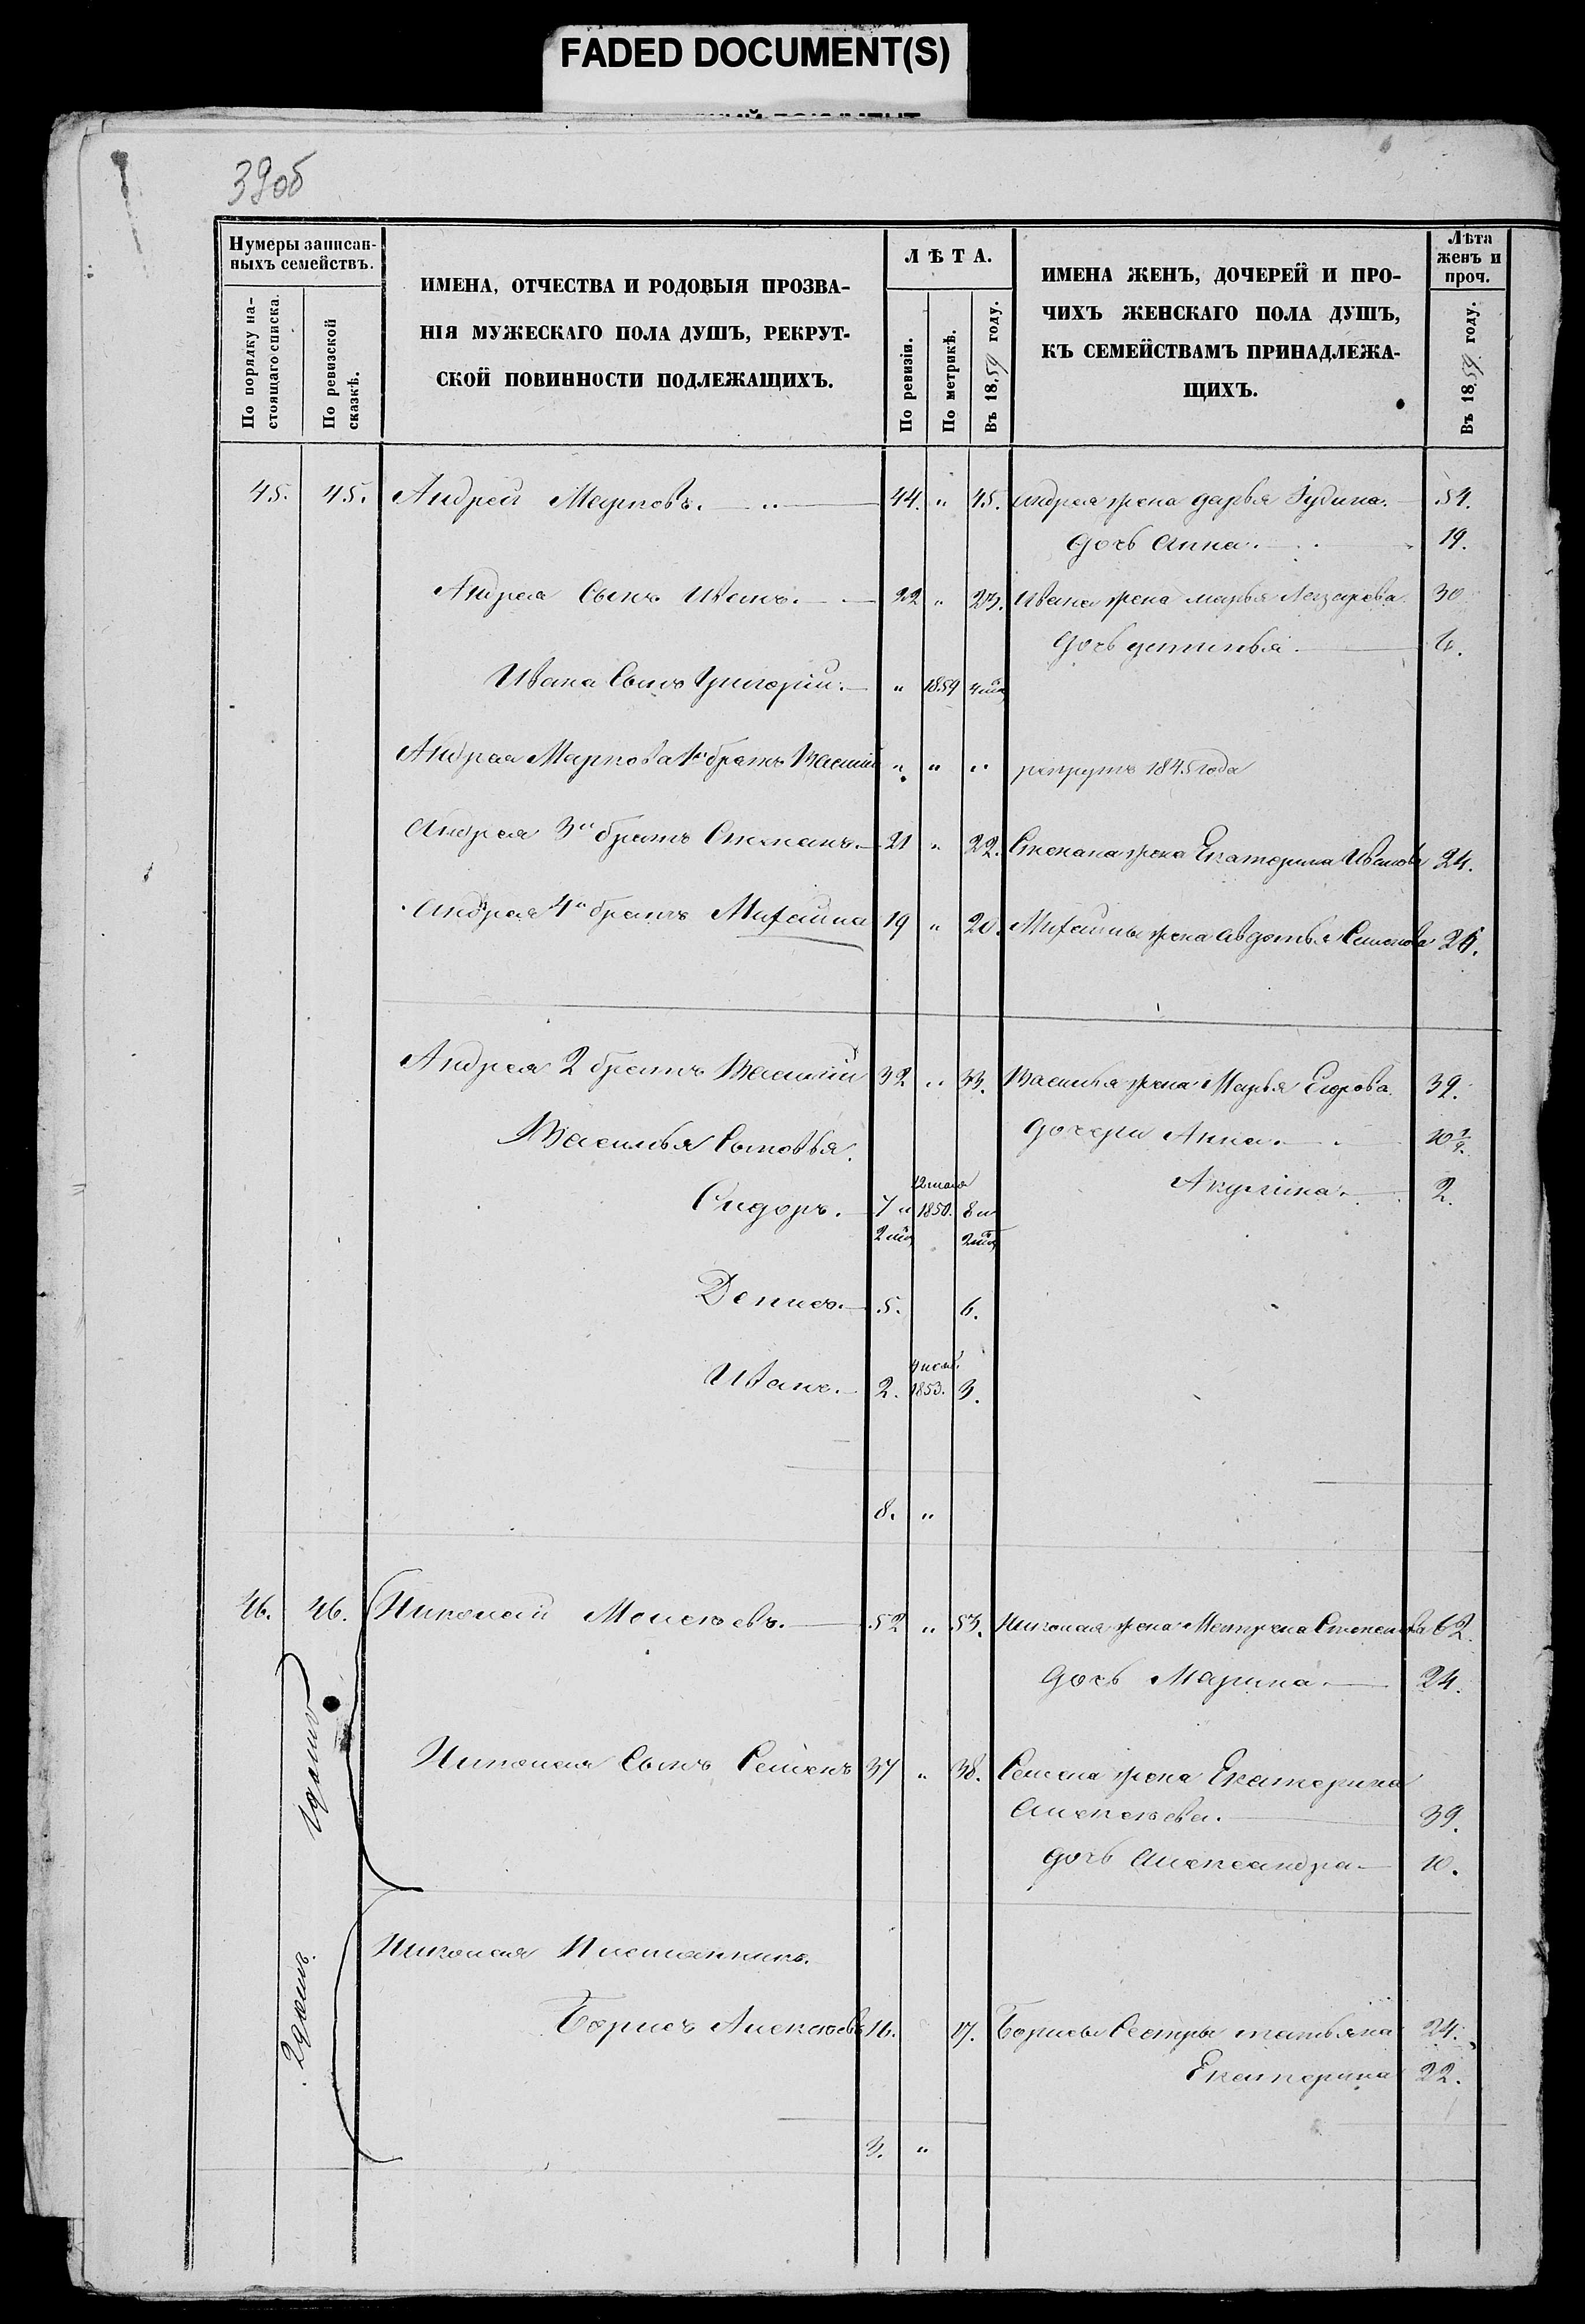 FADED DOCUMENT(S)
39об
Нумеры записан-
ныхъ семействъ.
По порядку на-
стоящаго списка.
По ревизской
сказкѣ.
ИМЕНА, ОТЧЕСТВА И РОДОВЫЯ ПРОЗВА-
НІЯ МУЖЕСКАГО ПОЛА ДУШЪ, РЕКРУТ-
СКОЙ ПОВИННОСТИ ПОДЛЕЖАЩИХЪ.
ЛѢТА.
По ревизіи.
По метрикѣ.
Въ 1859 году.
ИМЕНА ЖЕНЪ, ДОЧЕРЕЙ И ПРО-
ЧИХЪ ЖЕНСКАГО ПОЛА ДУШЪ,
КЪ СЕМЕЙСТВАМЪ ПРИНАДЛЕЖА-
ЩИХЪ.
Лѣта
женъ и
проч.
Въ 1859 году.
45. 45. Андрей Марковъ. 44. " 45. Андрея жена дарья Гудина. 54.
дочь Анна. 19.
Андрея Сынъ Иванъ. 22 " 23. Ивана жена марья Лазарева 30
дочь устинья. 4.
Ивана Сынъ Григорій. " 1859 4 мѣс
Андрея Маркова 1й братъ Василій " " " рекрутъ 1845 года
Андрея 3й братъ Степанъ. 21 " 22. Степана жена Екатерина Иванова 24.
Андрея 4й братъ Михаила 19 " 20. Михаилы жена авдотья Семенова 26.
Андрея 2 братъ Василій 32 " 33. Василья жена Марья Егорова. 39.
Василья Сыновья. дочери Анна. 10½.
12 мая Акулина. 2.
Сидоръ. 7 и 1850. 8 и
2 мѣс 2 мѣс
Денисъ. 5. 6.
Иванъ. 2. 1853. 3.
8. "
46. 46. Николай Моисѣевъ. 52 " 53. Николая жена Матрена Степанова 62.
дочь Марина. 24.
Николая Сынъ Семенъ 37 " 38. Семена жена Екатерина
Алексѣева. 39.
дочь Александра 10.
Николая Племянникъ.
Борисъ Алексѣевъ 16. 17. Бориса Сестры татьяна 24.
Екатерина 22.
3. "